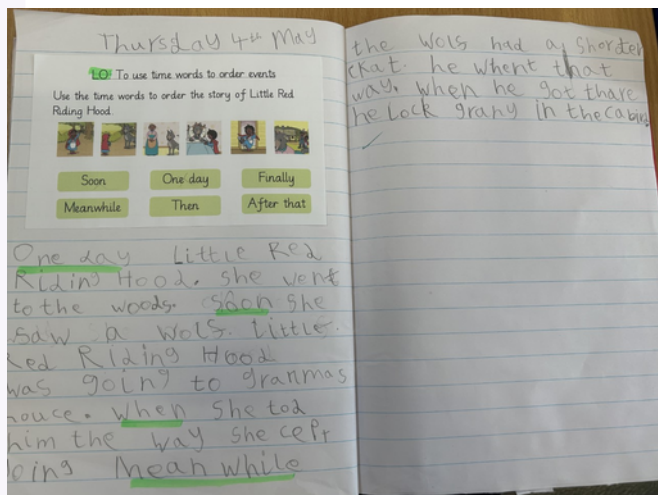 Thursday 4th May
LO: To use time words to order events
Use the time words to order the story of Little Red
Riding Hood.
Soon
One day
Finally
Meanwhile
Then
After that
One day Little Red
Riding Hood. she went
to the woods. soon she
saw a wols. Little.
Red Riding Hood
was going to granmas
houce. when she tod
him the way she cept
going Mean while
the wols had a shorter
ckat. he whent that
way. when he got thare
he lock grany in the cabind